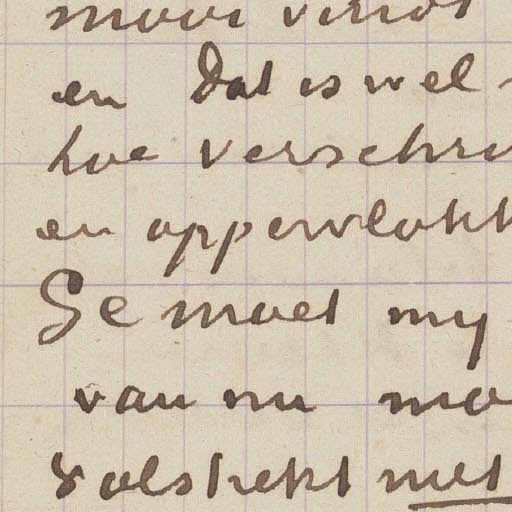 mooi
en Dat is wel -
hoe verschri
en oppervlakk
Ge moet my
van nu
volstrekt niet